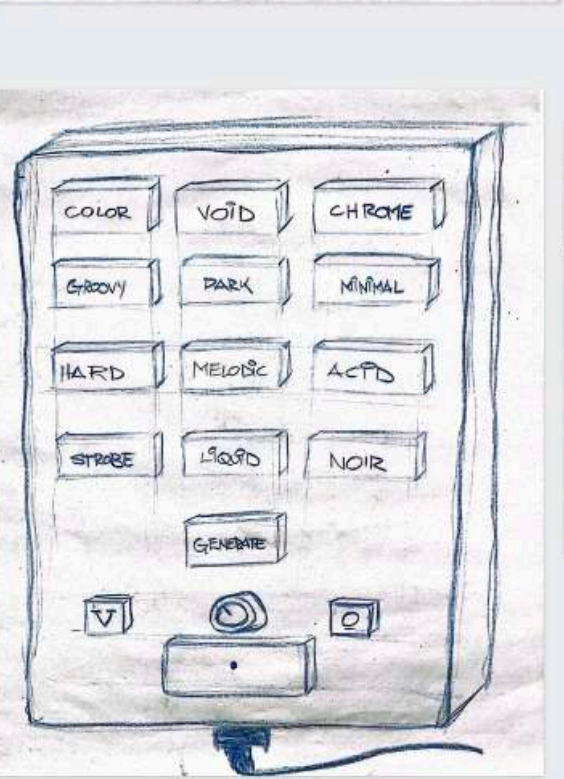 COLOR VOID CHROME
GROOVY DARK MINIMAL
HARD MELODIC ACID
STROBE LIQUID NOIR
GENERATE
V O